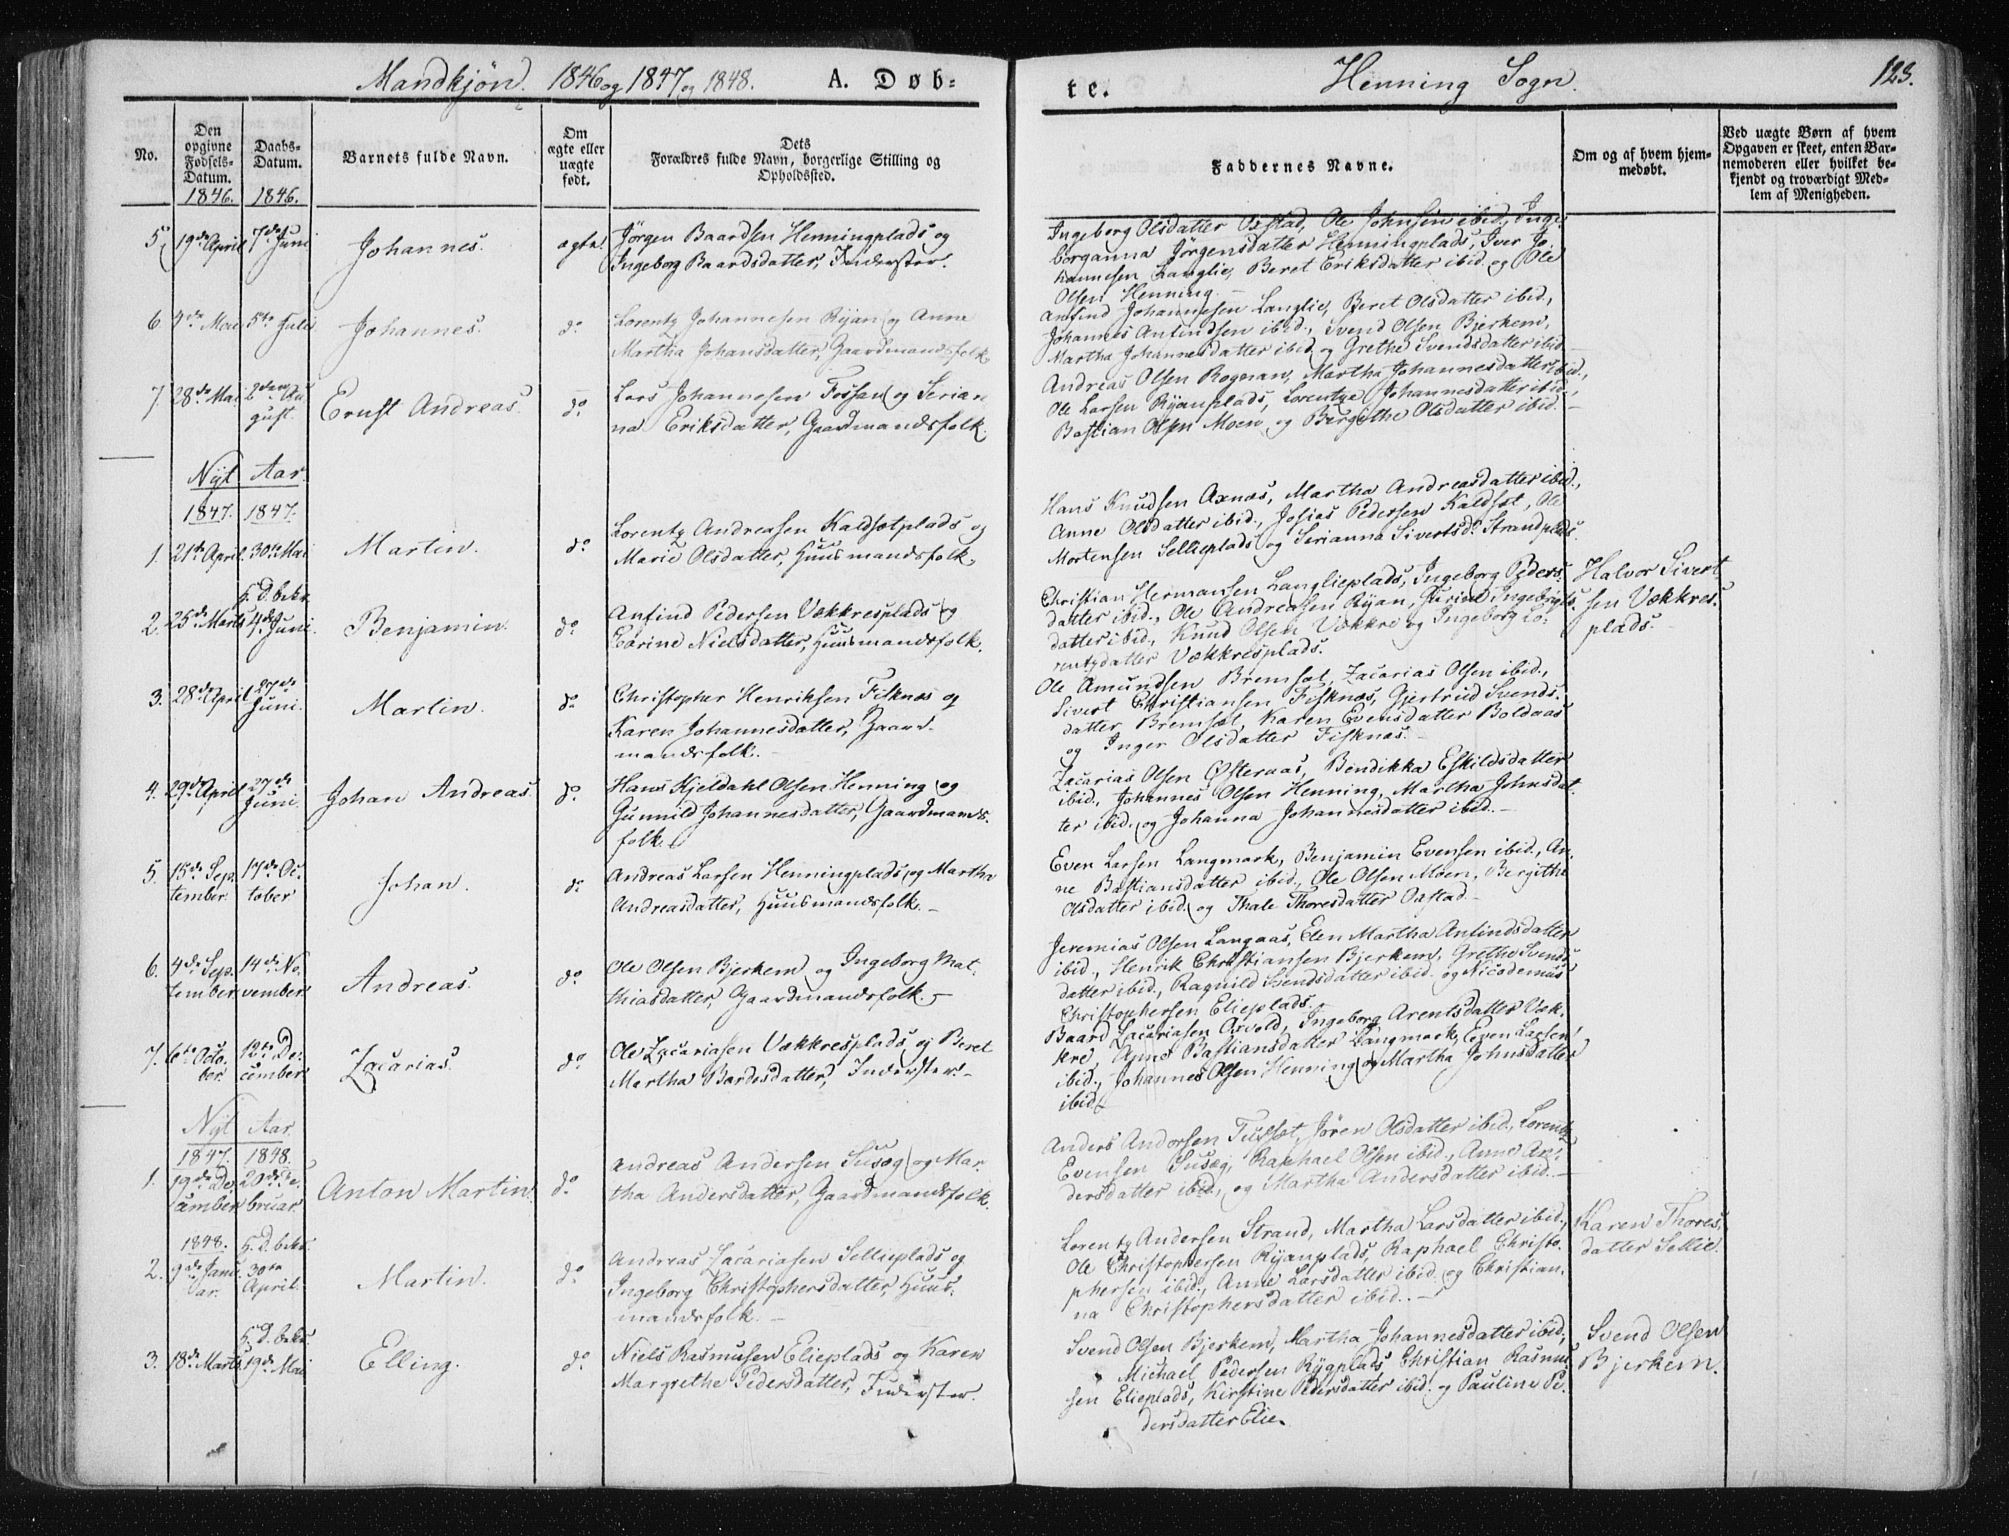 Mandkjøn. 1846 og 1847 og 1848. A. Døb=
te. Henning Sogn. 123.
No.
Den opgivne Fødsels-Datum. 1846.
Daabs-Datum. 1846.
Barnets fulde Navn.
Om ægte eller uægte født.
Dets Forældres fulde Navn, borgerlige Stilling og Opholdssted.
Faddernes Navne.
Om og af hvem hjem-medøbt.
Ved uægte Børn af hvem Opgaven er skeet, enten Bar-nemoderen eller hvilket be-kjendt og troværdigt Med-lem af Menigheden.
5 19de April 7de Juni Johannes. ægte
Jørgen Baardsen Henningplads og
Ingeborg Baardsdatter, Inderster.
Ingeborg Olsdatter Oxstad, Ole Johnsen ibid., Inge-
borganna Jørgensdatter Henningplads, Iver Jo-
hannesen Langlie, Beret Eriksdatter ibid. og Ole
Olsen Henning. –
6 4de Mai 5te Juli Johannes. do
Lorentz Johannesen Ryan og Anne
Martha Johansdatter, Gaardmandsfolk
Anfind Johannesen Langlie, Beret Olsdatter ibid.,
Johannes Anfindsen ibid., Svend Olsen Bjerkem,
Martha Johannesdatter ibid. og Grethe Svendsdatter ibid.
7 28de Mai 2den Au-
gust. Ernst Andreas. do
Lars Johannesen Fossen og Serian-
na Eriksdatter, Gaardmandsfolk.
Andreas Olsen Rognan, Martha Johannesdatter ibid.,
Ole Larsen Ryanplads, Lorentze Johannesdatter ibid.,
Bastian Olsen Moen og Bergithe Olsdatter ibid. –
Nyt Aar.
1847. 1847.
1. 21de April 30te Mai Martin. do
Lorentz Andreasen Kaldsetplads og
Marie Olsdatter, Huusmandsfolk.
Hans Knudsen Axnæs, Martha Andreasdatter ibid.,
Anne Olsdatter ibid., Josias Pedersen Kaldset, Ole
Mortensen Sellieplads og Serianna Sivertsd. Strandplads.
h. D. bekr.
2. 25de Marts 4de Juni. Benjamin. do
Anfind Pedersen Vækkresplads og
Karine Nielsdatter, Huusmandsfolk.
Christian Hermansen Langlieplads, Ingeborg Peders-
datter ibid., Ole Andreasen Ryan, Ingebrigts-
datter ibid., Knud Olsen Vækkre og Ingeborg Lo-
rentzdatter Vækkresplads.
Halvor Sivert-
sen Vækkres-
plads.
3. 28de April 27de
Juni. Martin. do
Christopher Henriksen Fisknæs og
Karen Johannesdatter, Gaard-
mandsfolk. –
Ole Amundsen Bremset, Zacarias Olsen ibid.,
Sivert Christiansen Fisknæs, Gjertrud Svends-
datter Bremset, Karen Evensdatter Boldaas
og Inger Olsdatter Fisknæs. –
4. 29de April 27de
Juni. Johan Andreas do
Hans Kjeldahl Olsen Henning og
Gunnild Johannesdatter, Gaardmands-
folk.
Zacarias Olsen Østeraas, Bendikka Eskildsdatter
ibid., Johannes Olsen Henning, Martha Johnsdat-
ter ibid. og Johanna Johannesdatter ibid. –
5. 15de Sep-
tember. 17de Oc-
tober Johan. do
Andreas Larsen Henningplads og Martha
Andreasdatter, Huusmandsfolk. –
Even Larsen Langmark, Benjamin Evensen ibid., An-
ne Bastiansdatter ibid., Ole Olsen Moen, Bergithe
Olsdatter ibid. og Thale Thoresdatter Oxstad. –
6. 4de Sep-
tember 14de No-
vember. Andreas. do
Ole Olsen Bjerkem og Ingeborg Mat-
thiasdatter, Gaardmandsfolk. –
Jeremias Olsen Langaas, Elen Martha Anfindsdatter
ibid., Henrik Christiansen Bjerkem, Grethe Svends-
datter ibid., Ragnild Svendsdatter ibid. og Nicodemus
Christophersen Elieplads.
7. 6te Octo-
ber. 12te De-
cember. Zacarias. do
Ole Zacariasen Vækkresplads og Beret
Martha Bardsdatter, Inderster. –
Baard Zacariasen Arvold, Ingeborg Arentsdatter Væk-
kre, Anne Bastiansdatter Langmark, Even Larsen
ibid., Johannes Olsen Henning og Martha Johnsdatter
ibid. –
Nyt Aar.
1847. 1848.
1. 19de De-
cember 20de Fe-
bruar. Anton Martin. do
Andreas Andersen Susæg og Mar-
tha Andersdatter, Gaardmandsfolk.
Anders Andersen Tusset, Jøren Olsdatter ibid., Lorentz
Evensen Susæg, Raphael Olsen ibid., Anne An-
dersdatter ibid., og Martha Andersdatter ibid. –
1848. h. D. bekr.
2. 9de Janu-
ar. 30te
April. Martin. do
Andreas Zacariasen Sellieplads og
Ingeborg Christophersdatter, Huus-
mandsfolk. –
Lorentz Andersen Strand, Martha Larsdatter ibid.,
Ole Christophersen Ryanplads, Raphael Christo-
phersen ibid., Anne Larsdatter ibid. og Christian-
na Christophersdatter ibid. –
Karen Thores-
datter Sellie.
h. D. bekr.
3. 18de Marts 19de Mai Elling. do
Niels Rasmusen Elieplads og Karen
Margrethe Pedersdatter, Inderster.
Svend Olsen Bjerkem, Martha Johannesdatter ibid.,
Michael Pedersen Rygplads, Christian Rasmus-
sen Elieplads, Kirstine Pedersdatter ibid. og Pauline Pe-
dersdatter Elie.
Svend Olsen
Bjerkem.